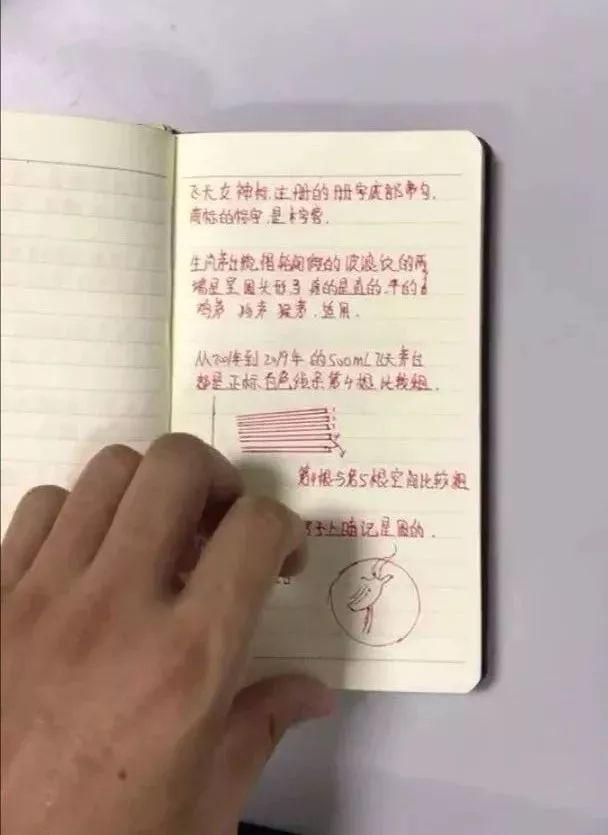 飞天女神标,注册的册字底部带勾,
商标的标字,是木字旁.
生肖茅台瓶帽轮间做的波浪纹的两
端是呈圆头形了 真的是直的.牛的
鸡茅 狗茅 猴茅.适用.
从2001年到2019年的500mL飞天茅台
都是正标.右色线条第4根比较粗.
第4根与第5根空间比较粗
子上暗记是圆的.